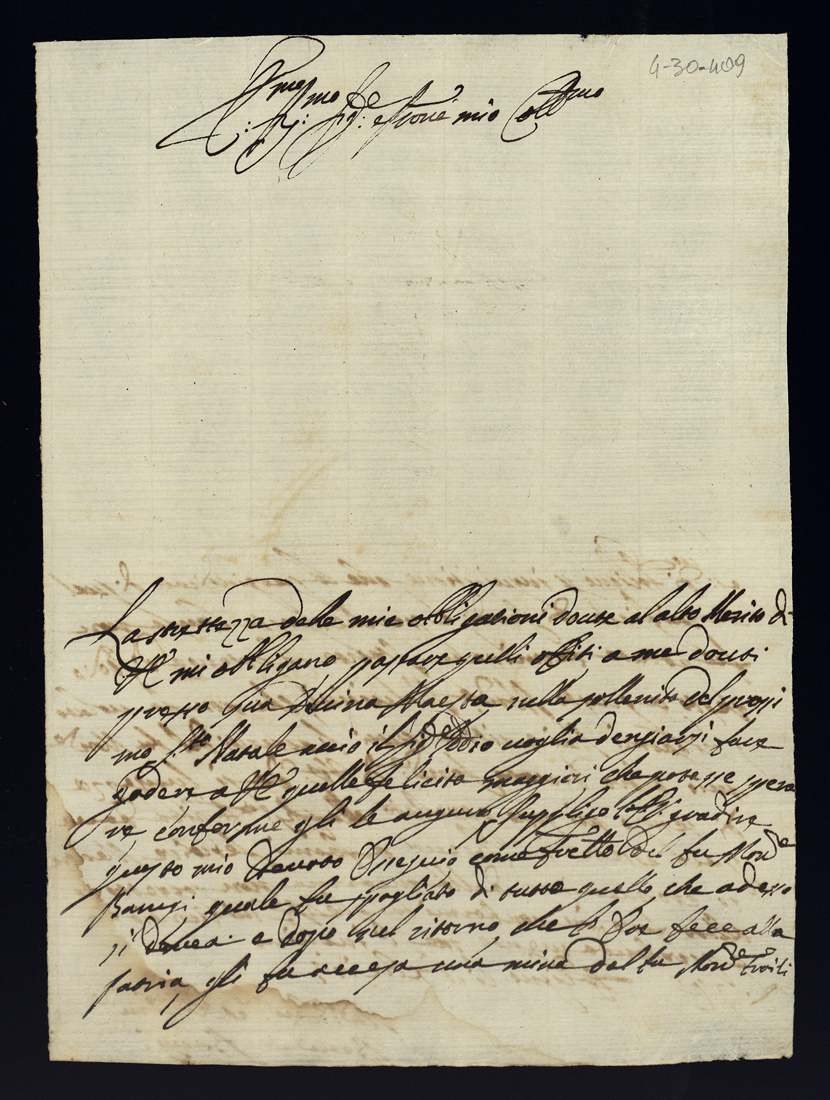 4-30-409
Emo mo Sig:re e Prone mio Coll mo
La strettezza delle mie obbligationi douute al alto Merito di
VE mi obbligano passare quelli offitii a me douti
presso Sua Diuina Maesta nella sollenita del prossi
mo Sto Natale accio il Sig:re Iddio uoglia degniarsi fare
godere a VE quelle felicita maggiori che potesse spera
re conforme gli le auguro, supplico gradire
questo mio deuoto Ossequio come fretto del fu Mon.re
quale fu spogliato di tutto quello che adesso
si douea: e dopo nel ritorno che fece alla
patria, gli fu accesa una mina dal fu Mon.re